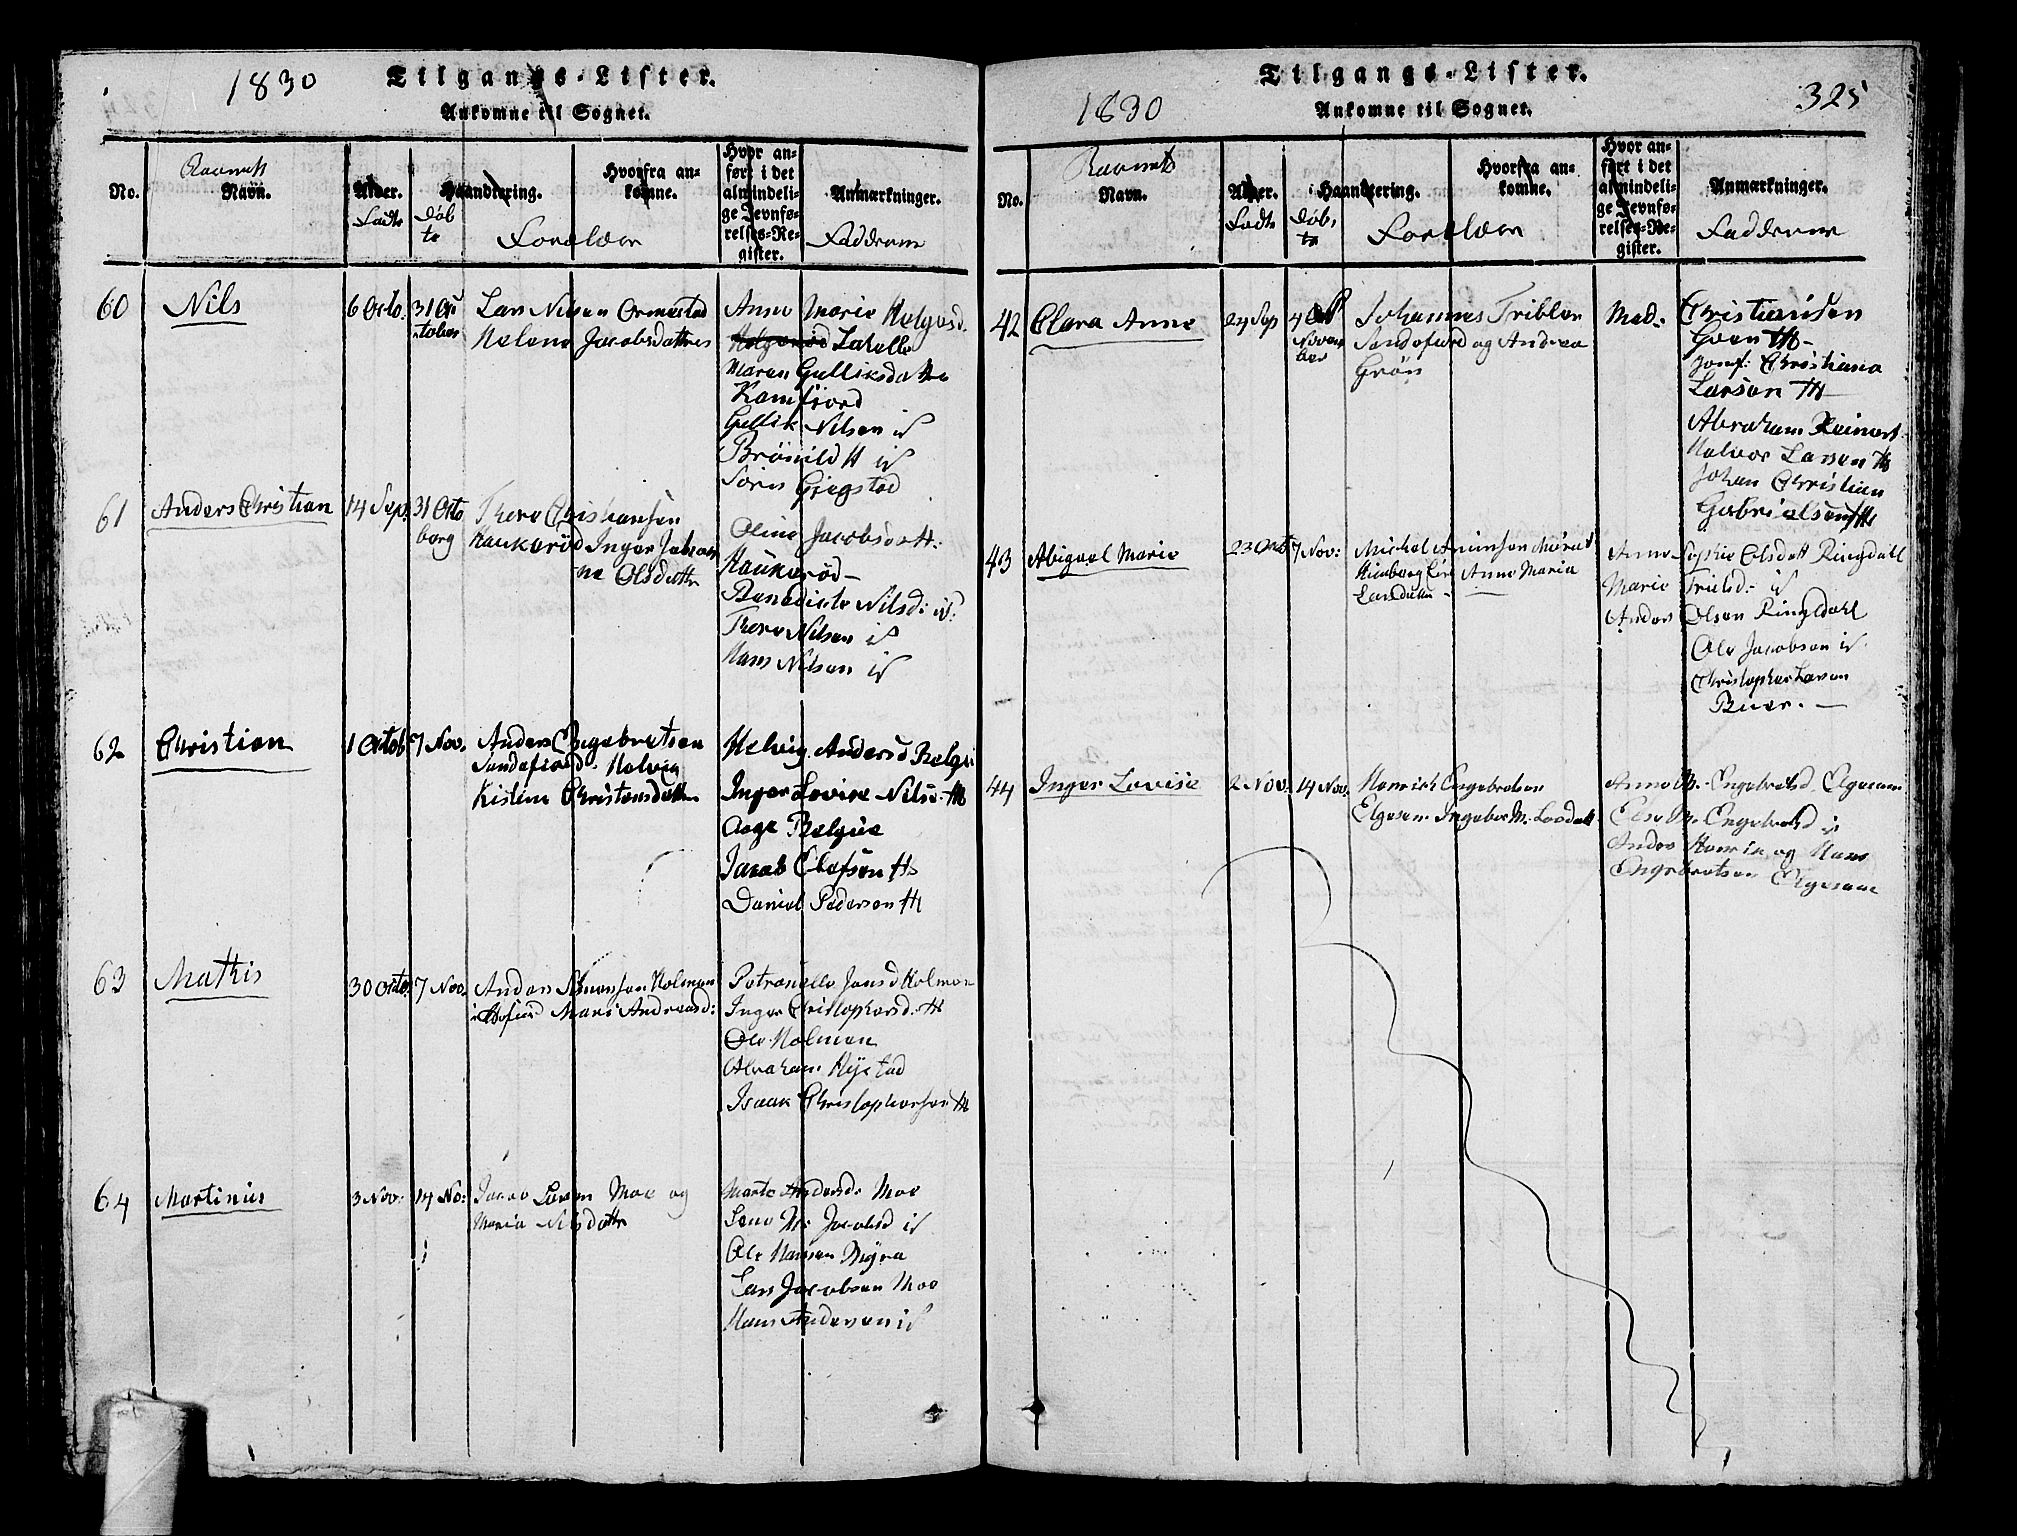 1830
Tilgangs-Lister.
Ankomne til Sognet.
No.
Navn.
Alder.
Haandtering.
Hvorfra an-
komne.
Hvor an-
ført i det
almindeli-
ge Jevnfø-
relses-Re-
gister.
Anmærkninger.
Fødte
Døb
te
Forældre
Fadderne
60
Nils
6 Octo.
31 Oc
tober
Lars Nilsen Ormestad
Helene Jacobsdatter
Anne Marie Helgesd.
Maren Gulliksdatter
Kamfjord
Gullik Nilsen id
Søren Gjegstad
61
Anders Christian
14 Sep.
31 Octo
Thore Christiansen
Haukerød Inger Johan
ne Olsdatter
Oline Jacobsdatt:
Haukerød
Benedicte Nilsd: id:
Thore Nilsen id
Hans Nilsen id
62
Christian
1 Octob
7 Nov.
Anders Engebretsen
Sandefiord. Helvig
Kistine Christensdatter
Helvig Andersd
Inger Lovise Nilsd. H
Jacob Olafsen H
Daniel Pedersen H
63
Mathis
30 Octo.
7 Nov.
Anders Simonsen Holman
Mari Andreasd:
Petronelle Jansd Holman
Inger Christophersd. H
Ole Holman
Abraham Nystad
Isaak Christophersen H
64
Martinus
3 Nov:
14 No:
Larsen Moe og
Maria Nilsdatter
Marte Andersd. Moe
Jacobsd id
Ole Hansen Myra
Lars Jacobsen Moe
Hans Andersen id
1830
Tilgangs-Lister.
325
Ankomne til Sognet.
No.
Navn.
Alder.
Haandtering.
Hvorfra an-
komne.
Hvor an-
ført i det
almindeli-
ge Jevnfø-
relses-Re-
gister.
Anmærkninger.
Fødte
Døb
te
Forældre
Fadderne
42
Clara Anne
24 Sep
4
Novem
ber
Johannes Tribler
Sandefiord og Andrea
Grøn
Mad:
Christiansen
Jomf: Christiana
Larsen H
Abraham Reinert
Halvor Larsen H
Johan Christian
Gabrielsen H
43
Abigael Marie
23 Oct
7 Nov:
Michel
Anne Maria
Larsdatter
Anne Sophie Olsdatt Ringdall
Marie
id
Anders Olsen Ringdahl
Ole Jacobsen id
Christopher Larsen
Buer.
44
Inger Lovise
2 Nov.
14 Nov.
Henrich Engebretsen
Elgesem Ingebor M. Larsdatt
Anne M. Engebretsd. Elgesem
Else M. Engebretsd id
Anders Henrik og Hans
Engebretsen Elgesem